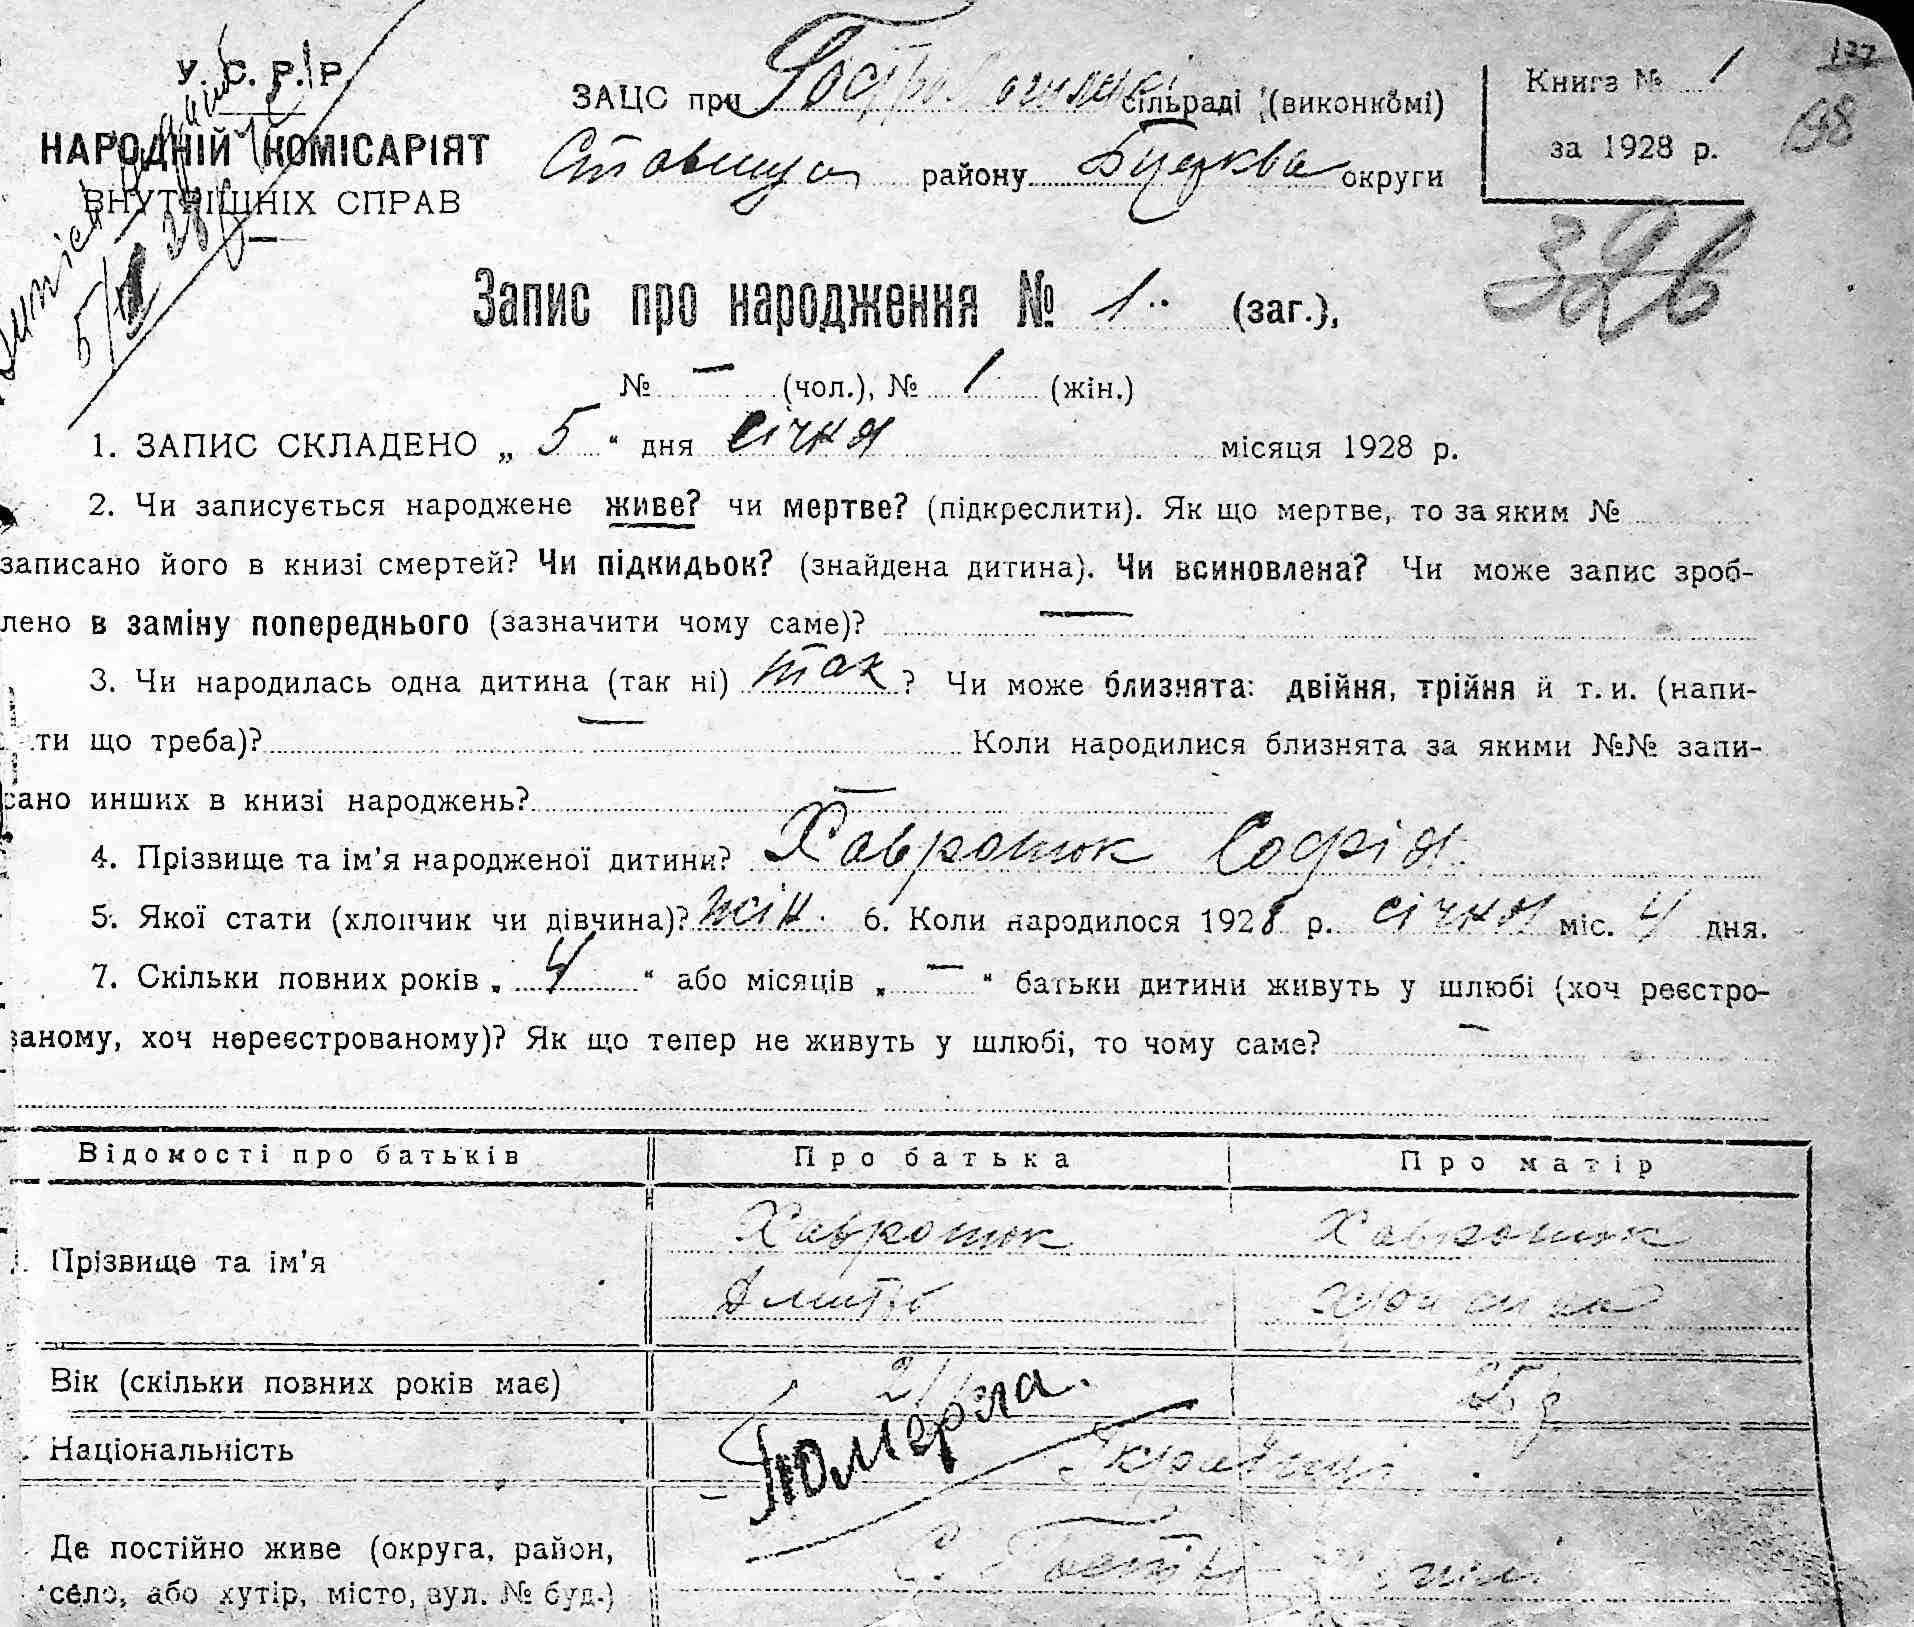 У. С. Р. Р.
НАРОДНІЙ КОМІСАРІЯТ
ВНУТРІШНІХ СПРАВ
ЗАЦС при сільраді (виконкомі)
району Бцеркви округи
Книга № 1
за 1928 р.
137
198
39в
Запис про народження № 1 (заг.),
№ — (чол.), № 1 (жін.)
1. ЗАПИС СКЛАДЕНО „ 5 “ дня січня місяця 1928 р.
2. Чи записується народжене живе? чи мертве? (підкреслити). Як що мертве, то за яким №
записано його в книзі смертей? Чи підкидьок? (знайдена дитина). Чи всиновлена? Чи може запис зроб-
лено в заміну попереднього (зазначити чому саме)? —
3. Чи народилась одна дитина (так ні) так ? Чи може близнята: двійня, трійня й т. и. (напи-
ти що треба)? — Коли народилися близнята за якими №№ запи-
сано инших в книзі народжень? —
4. Прізвище та ім’я народженої дитини? Хавронюк Софія
5. Якої стати (хлопчик чи дівчина)? жін. 6. Коли народилося 1928 р. січня міс. 4 дня.
7. Скільки повних років „ 4 “ або місяців „ — “ батьки дитини живуть у шлюбі (хоч реєстро-
ваному, хоч нереєстрованому)? Як що тепер не живуть у шлюбі, то чому саме? —
Відомості про батьків Про батька Про матір
Прізвище та ім’я Хавронюк Хавронюк
Вік (скільки повних років має)
Померла.
Національність Українці
Де постійно живе (округа, район,
село, або хутір, місто, вул. № буд.)